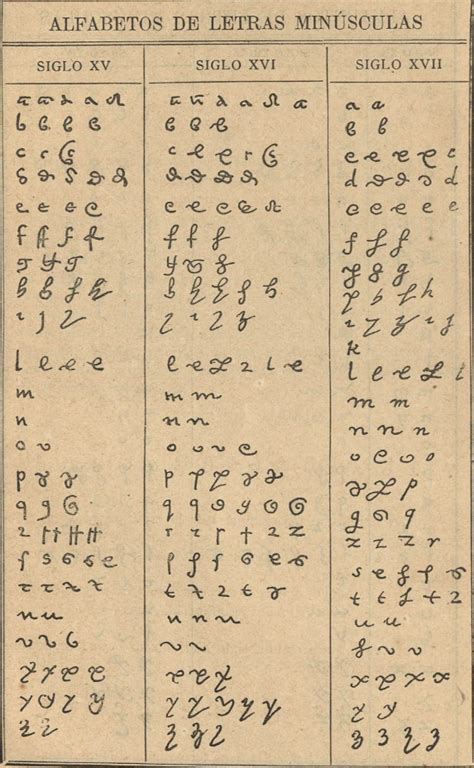 ALFABETOS DE LETRAS MINÚSCULAS
SIGLO XV SIGLO XVI SIGLO XVII
a a a a a a a a a a a a a
b b b b b b b b b b
c c c c c c c c c c c c
d d d d d d d d d d d d d d
e e e e e e e e e e e e e
f f f f f f f f f f
g g g g g g g g g
h h h h h h h h h h h h
i j i i i i i i i i i j
k
l l l l l l l l l l l l l l l
m m m m m
n n n n n n
o o o o o o o o o o
p p p p p p p p p p p
q q q q q q q q q q q
r r r r r r r r r r r r r r
s s s s s s s s s s s s s s s
t t t t t t t t t t t t t
u u u u u u u
v v v v v v v v
x x x x x x x x x x x
y y y y y y y y y y y
z z z z z z z z